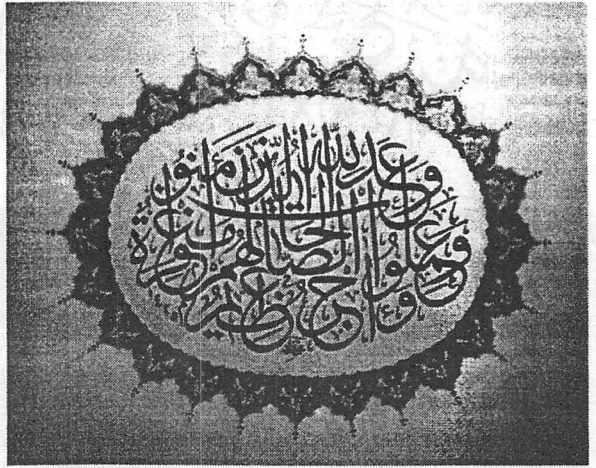 وَعَدَ اللَّهُ الَّذِينَ ءَامَنُوا
وَعَمِلُوا الصَّالِحَاتِ لَهُم مَّغْفِرَةٌ
وَأَجْرٌ عَظِيمٌ